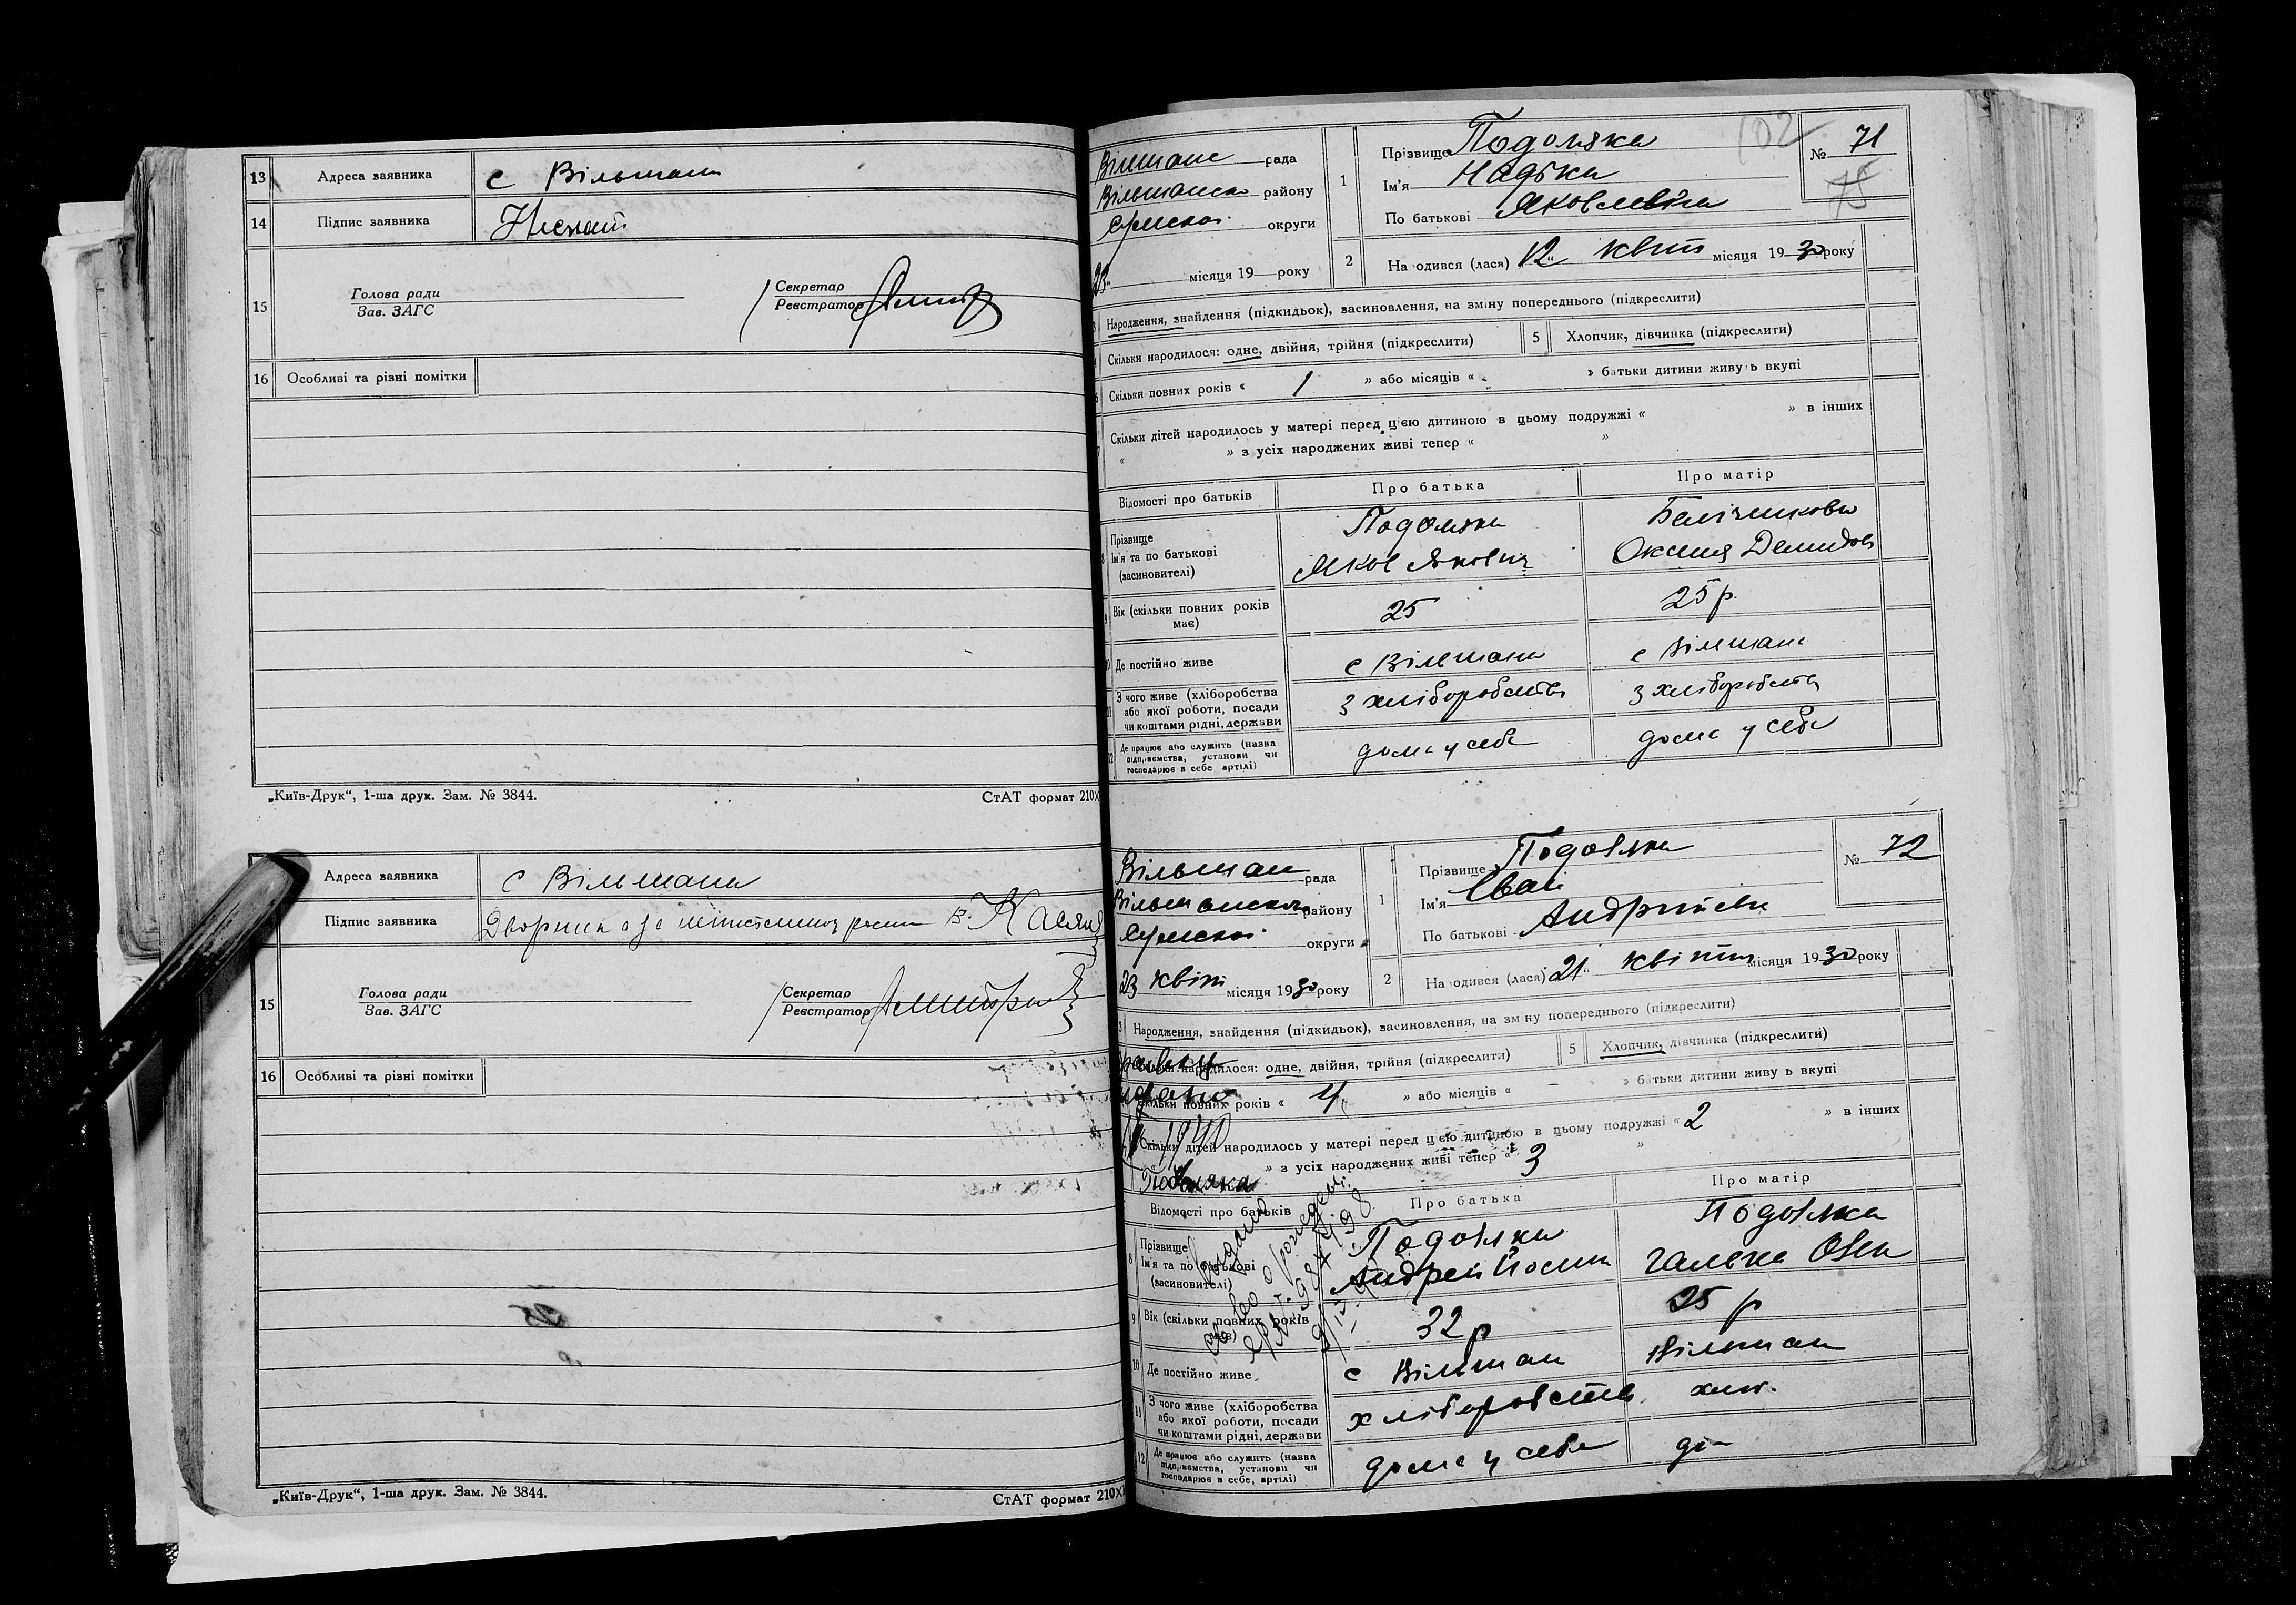 13 Адреса заявника с Вільшани
14 Підпис заявника
15 Голова ради
Зав. ЗАГС
Секретар
Реєстратор
16 Особливі та різні помітки
„Київ-Друк“, 1-ша друк. Зам. № 3844.
СтАТ формат 210×
Адреса заявника с Вільшана
Підпис заявника
15 Голова ради
Зав. ЗАГС
Секретар
Реєстратор
16 Особливі та різні помітки
„Київ-Друк“, 1-ша друк. Зам. № 3844.
СтАТ формат 210×
102
Вілшанс рада
Вільшанск району
Сумської округи
23 місяця 19 року
1 Прізвище Подоляка
Ім'я Надька
По батькові Яковлевна
№ 71
75
2 На одився (лася) 12 квіт місяця 1930 року
Народження, знайдення (підкидьок), засиновлення, на зміну попереднього (підкреслити)
Скільки народилося: одне, двійня, трійня (підкреслити) 5 Хлопчик, дівчинка (підкреслити)
Скільки повних років « 1 » або місяців « » батьки дитини живуть вкупі
Скільки дітей народилось у матері перед цією дитиною в цьому подружжі « » в інших
« » з усіх народжених живі тепер « »
Відомості про батьків Про батька Про матір
Прізвище
Ім'я та по батькові
(засиновителі)
Подоляка
Яков Якович
Оксения Демидов
Вік (скільки повних років
має)
25 25 р.
Де постійно живе с Вільшана с Вілшани
З чого живе (хліборобства
або якої роботи, посади
чи коштами рідні, держави
з хліборобства з хліборобства
Де працює або служить (назва
підприємства, установи чи
господарює в себе артілі)
дома у себе дома у себе
Вільшан рада
Вільшанськ району
Сумської округи
23 квіт місяця 1930 року
1 Прізвище Подоляка
Ім'я Іван
По батькові Андрпієвн
№ 72
2 На одився (лася) 21 квітня місяця 1930 року
Народження, знайдення (підкидьок), засиновлення, на зміну попереднього (підкреслити)
народилося: одне, двійня, трійня (підкреслити) 5 Хлопчик, дівчинка (підкреслити)
Скільки повних років « 4 » або місяців « – » батьки дитини живуть вкупі
Скільки дітей народилось у матері перед цією дитиною в цьому подружжі « 2 » в інших
» з усіх народжених живі тепер « 3 »
1940
Подоляка
Відомості про батьків Про батька Про матір
8 Прізвище
Ім'я та по батькові
(засиновителі)
Подоляка
Андрей
Подоляка
Галька
9 Вік (скільки повних років
має)
32 р 25 р
10 Де постійно живе с Вілшан Вілшан
11 З чого живе (хліборобства
або якої роботи, посади
чи коштами рідні, держави
хліборобств хліб.
12 Де працює або служить (назва
підприємства, установи чи
господарює в себе, артілі)
дома у себе до–